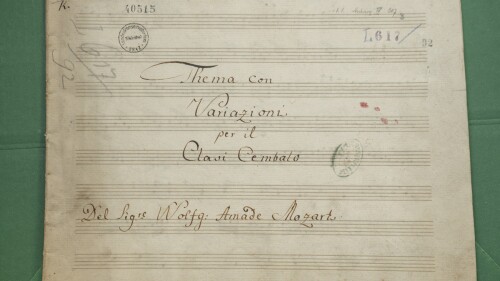 40515
L617/
92
1617/
92
Thema con
Variazioni
per il
Clavi Cembalo
Del Sigre Wolfg: Amade Mozart.